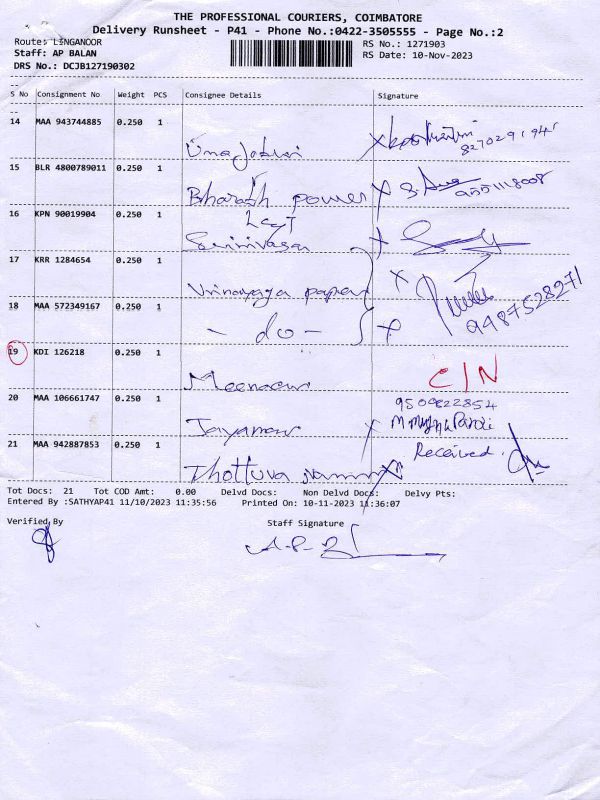 THE PROFESSIONAL COURIERS, COIMBATORE
Delivery Runsheet - P41 - Phone No.:0422-3505555 - Page No.:2
Route: LINGANOOR
RS No.: 1271903
Staff: AP BALAN
RS Date: 10-Nov-2023
DRS No.: DCJB127190302
S No Consignment No Weight PCS Consignee Details Signature
14 MAA 943744885 0.250 1
15 BLR 4800789011 0.250 1
Bharath power 9551118008
16 KPN 90019904 0.250 1
Srinivasan
17 KRR 1284654 0.250 1
Vinayaga papers
18 MAA 572349167 0.250 1
- do - 9487528271
19 KDI 126218 0.250 1
C/N
20 MAA 106661747 0.250 1
9500822854
21 MAA 942887853 0.250 1
Received.
Thottuva
Tot Docs: 21 Tot COD Amt: 0.00 Delvd Docs: Non Delvd Docs: Delvy Pts:
Entered By :SATHYAP41 11/10/2023 11:35:56 Printed On: 10-11-2023 11:36:07
Verified By Staff Signature